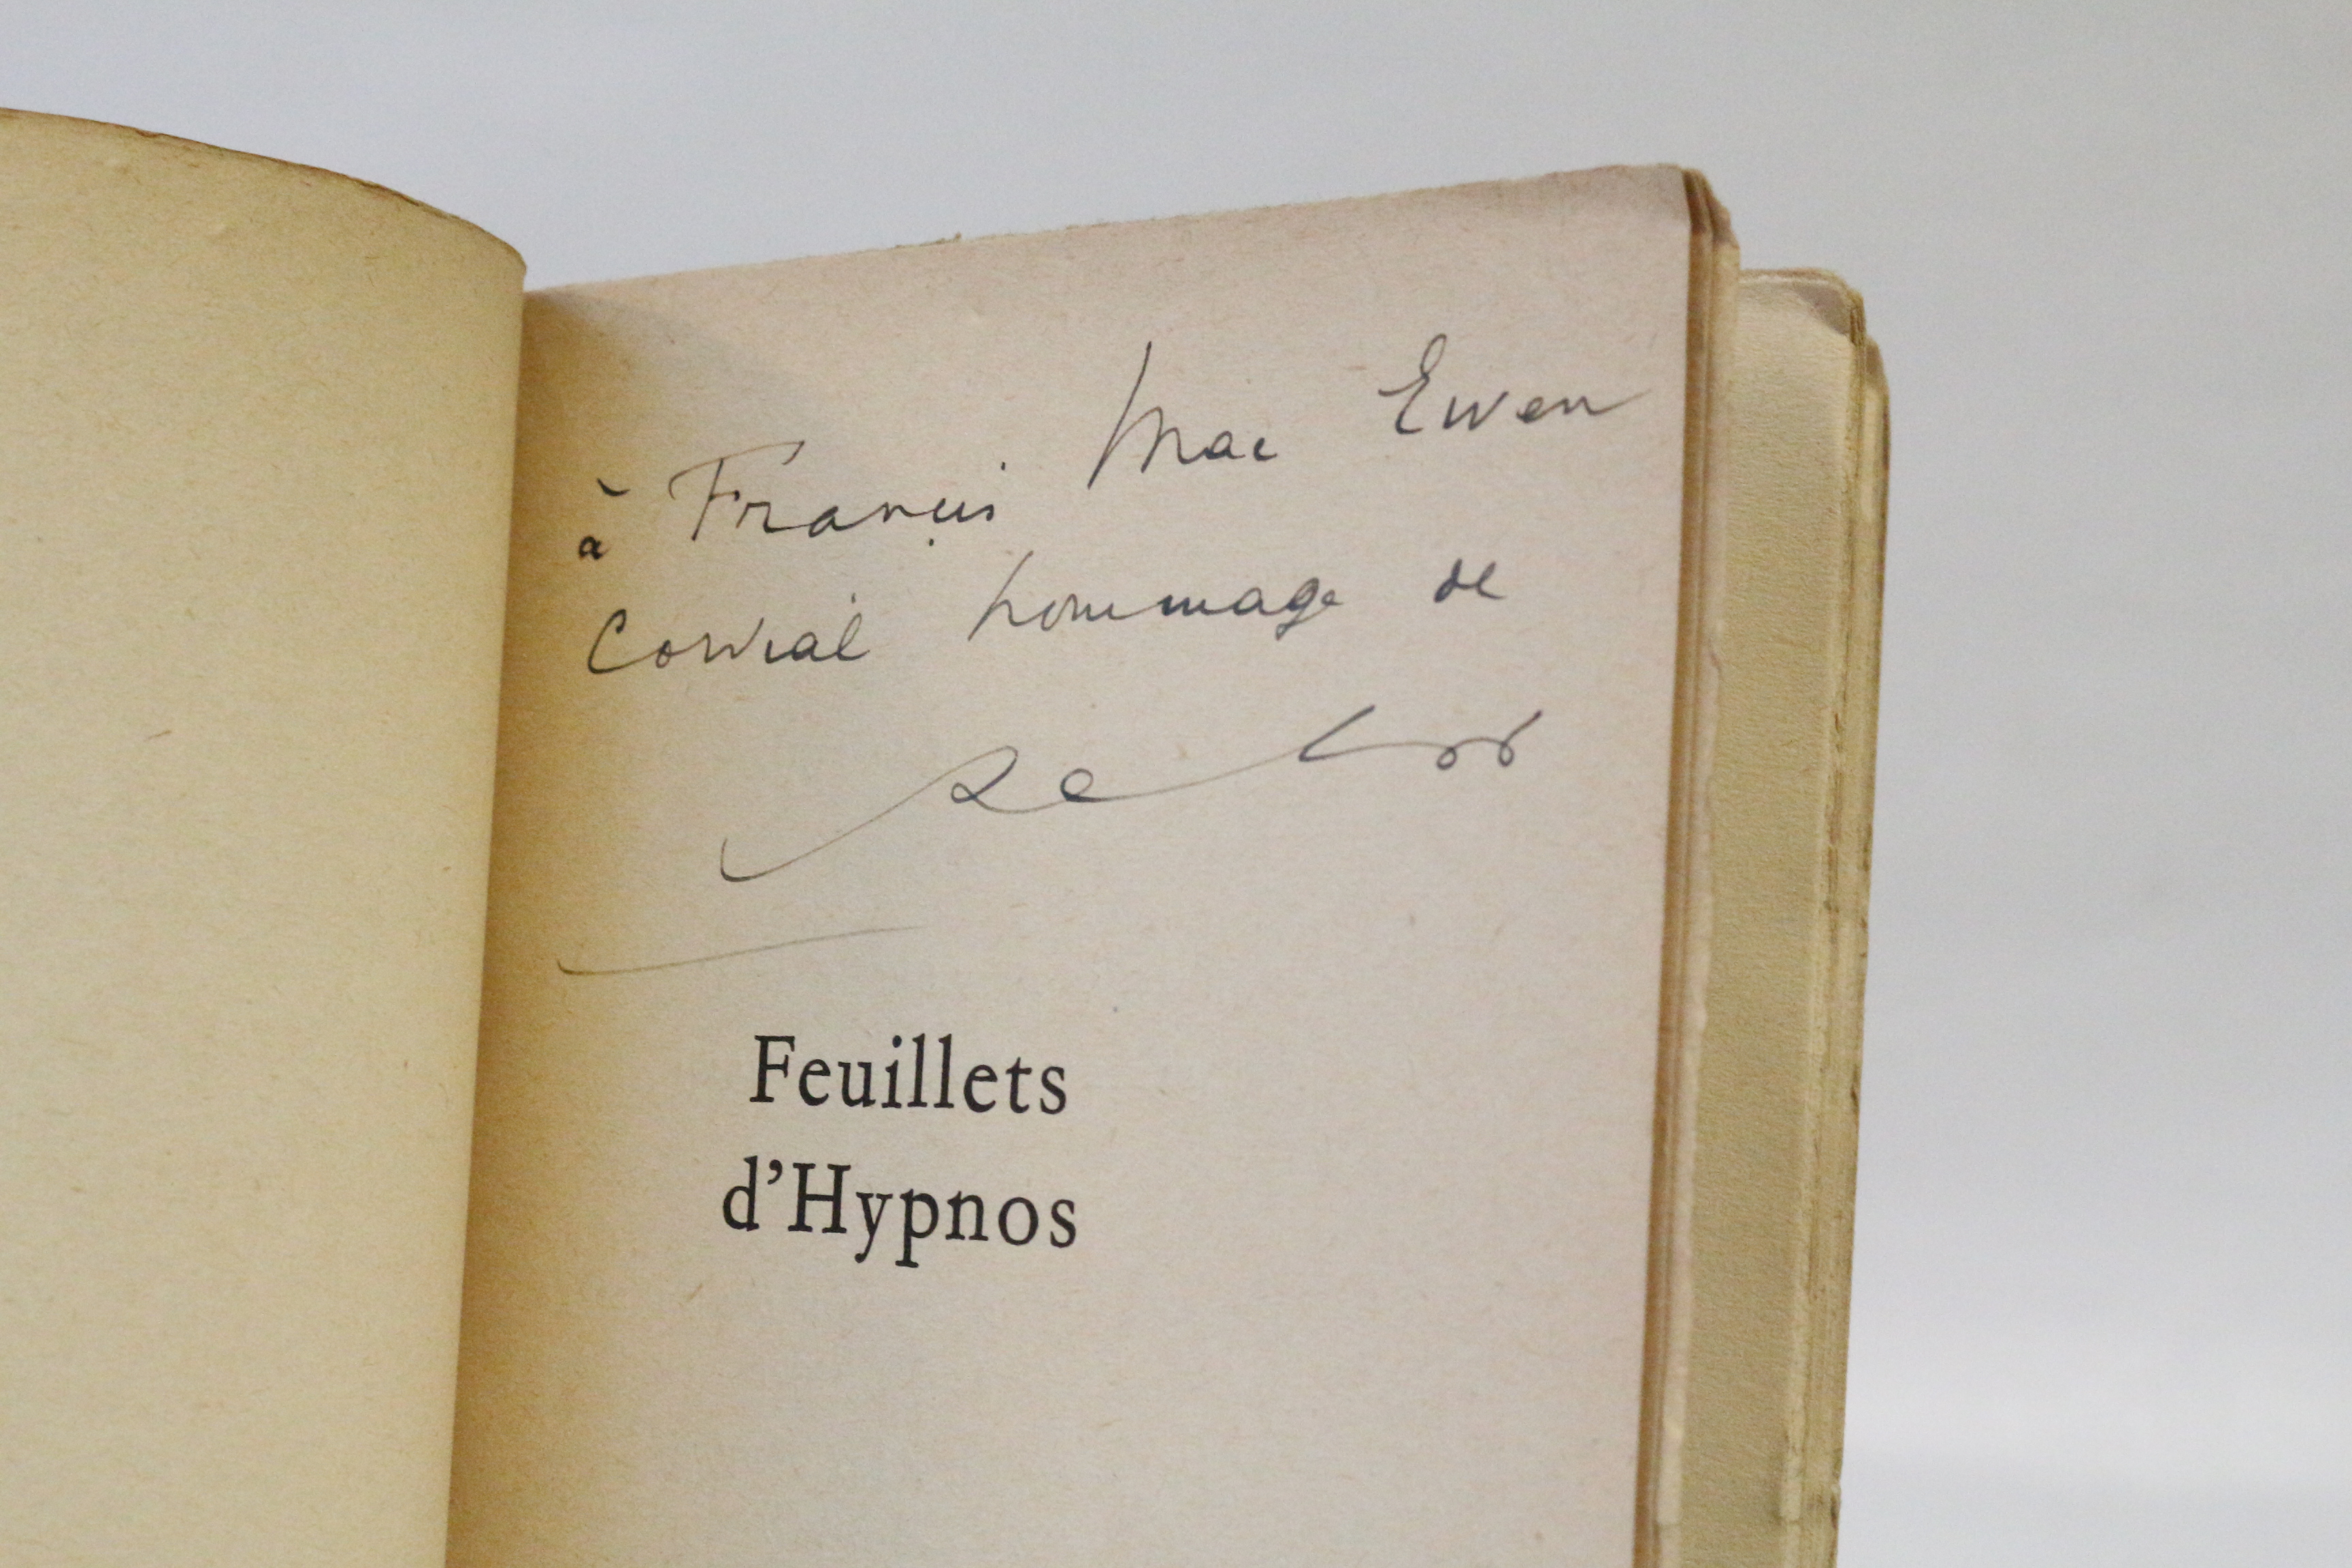 à Francis Mac Ewen
Cordial hommage de
Feuillets
d'Hypnos